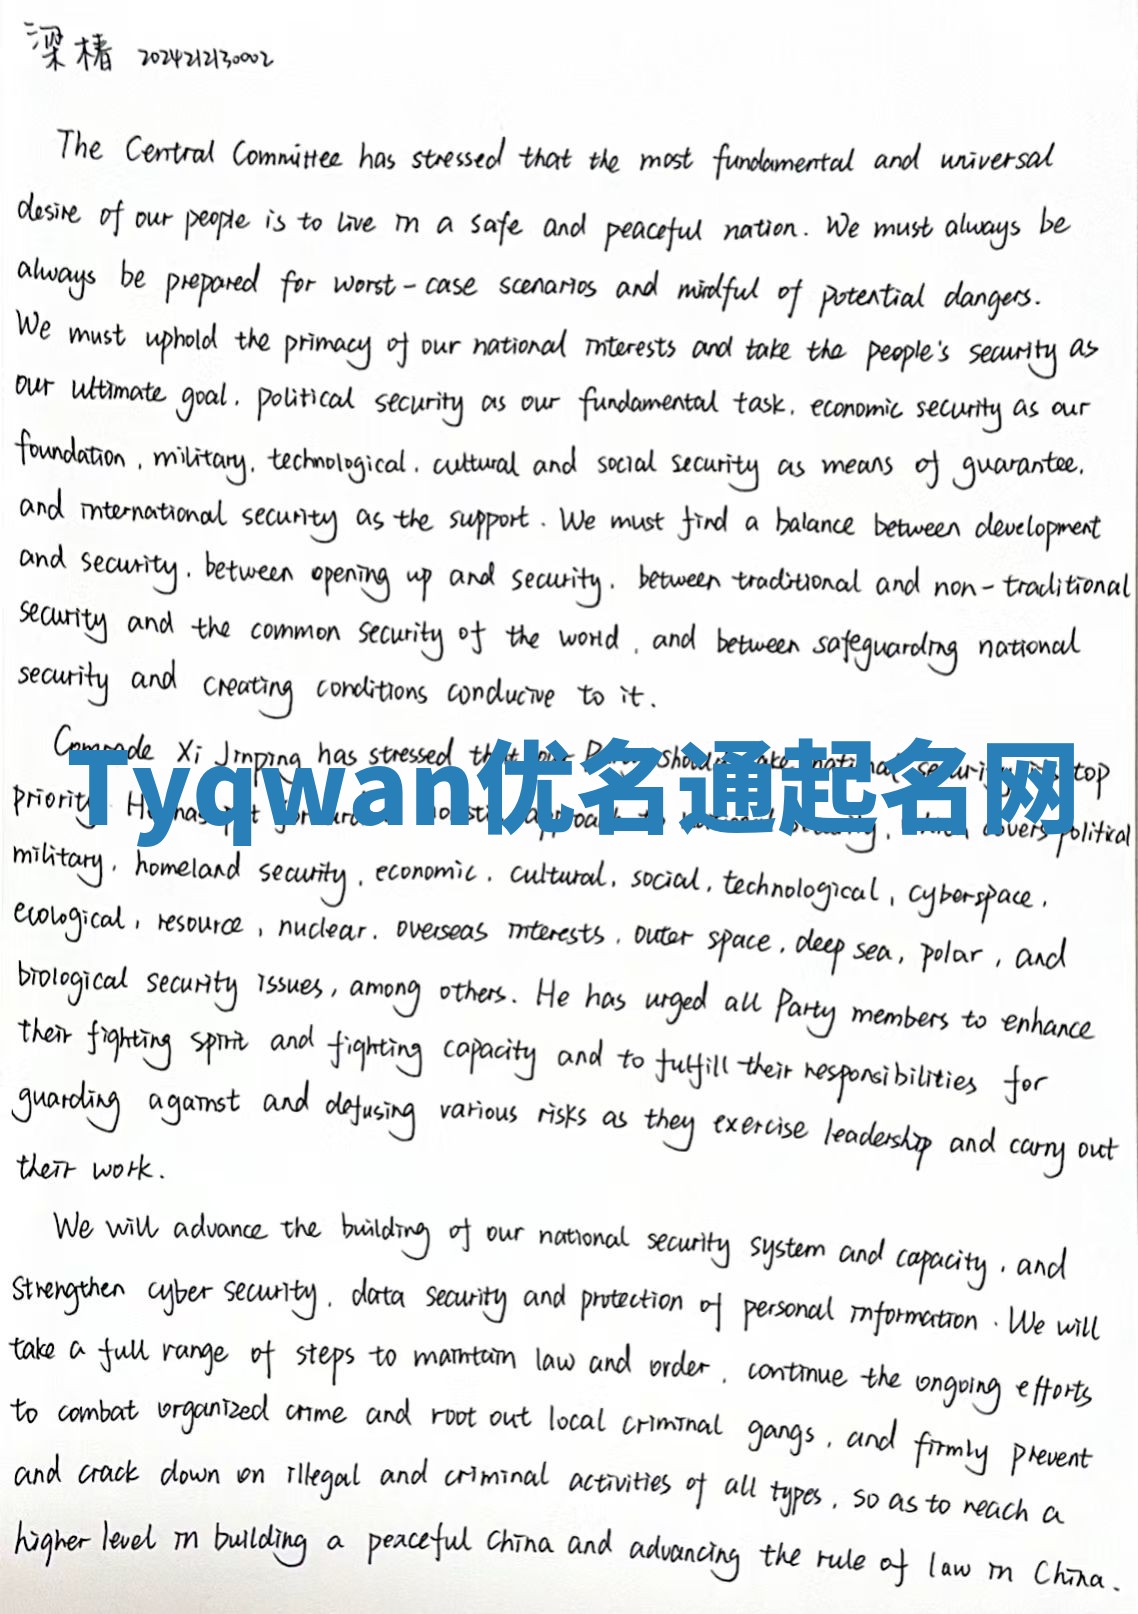 梁椿 2024212130002
The Central Committee has stressed that the most fundamental and universal
desire of our people is to live in a safe and peaceful nation. We must always be
always be prepared for worst-case scenarios and mindful of potential dangers.
We must uphold the primacy of our national interests and take the people's security as
our ultimate goal, political security as our fundamental task, economic security as our
foundation, military, technological, cultural and social security as means of guarantee,
and international security as the support. We must find a balance between development
and security, between opening up and security, between traditional and non-traditional
security and the common security of the world, and between safeguarding national
security and creating conditions conducive to it.
Comrade Xi Jinping has stressed that our Party should take national security as top
Tyqwan优名通起名网
priority. He has put forward a holistic approach to national security, which covers political
military, homeland security, economic, cultural, social, technological, cyberspace,
ecological, resource, nuclear, overseas interests, outer space, deep sea, polar, and
biological security issues, among others. He has urged all Party members to enhance
their fighting spirit and fighting capacity and to fulfill their responsibilities for
guarding against and defusing various risks as they exercise leadership and carry out
their work.
We will advance the building of our national security system and capacity, and
strengthen cyber security, data security and protection of personal information. We will
take a full range of steps to maintain law and order, continue the ongoing efforts
to combat organized crime and root out local criminal gangs, and firmly prevent
and crack down on illegal and criminal activities of all types, so as to reach a
higher level in building a peaceful China and advancing the rule of law in China.